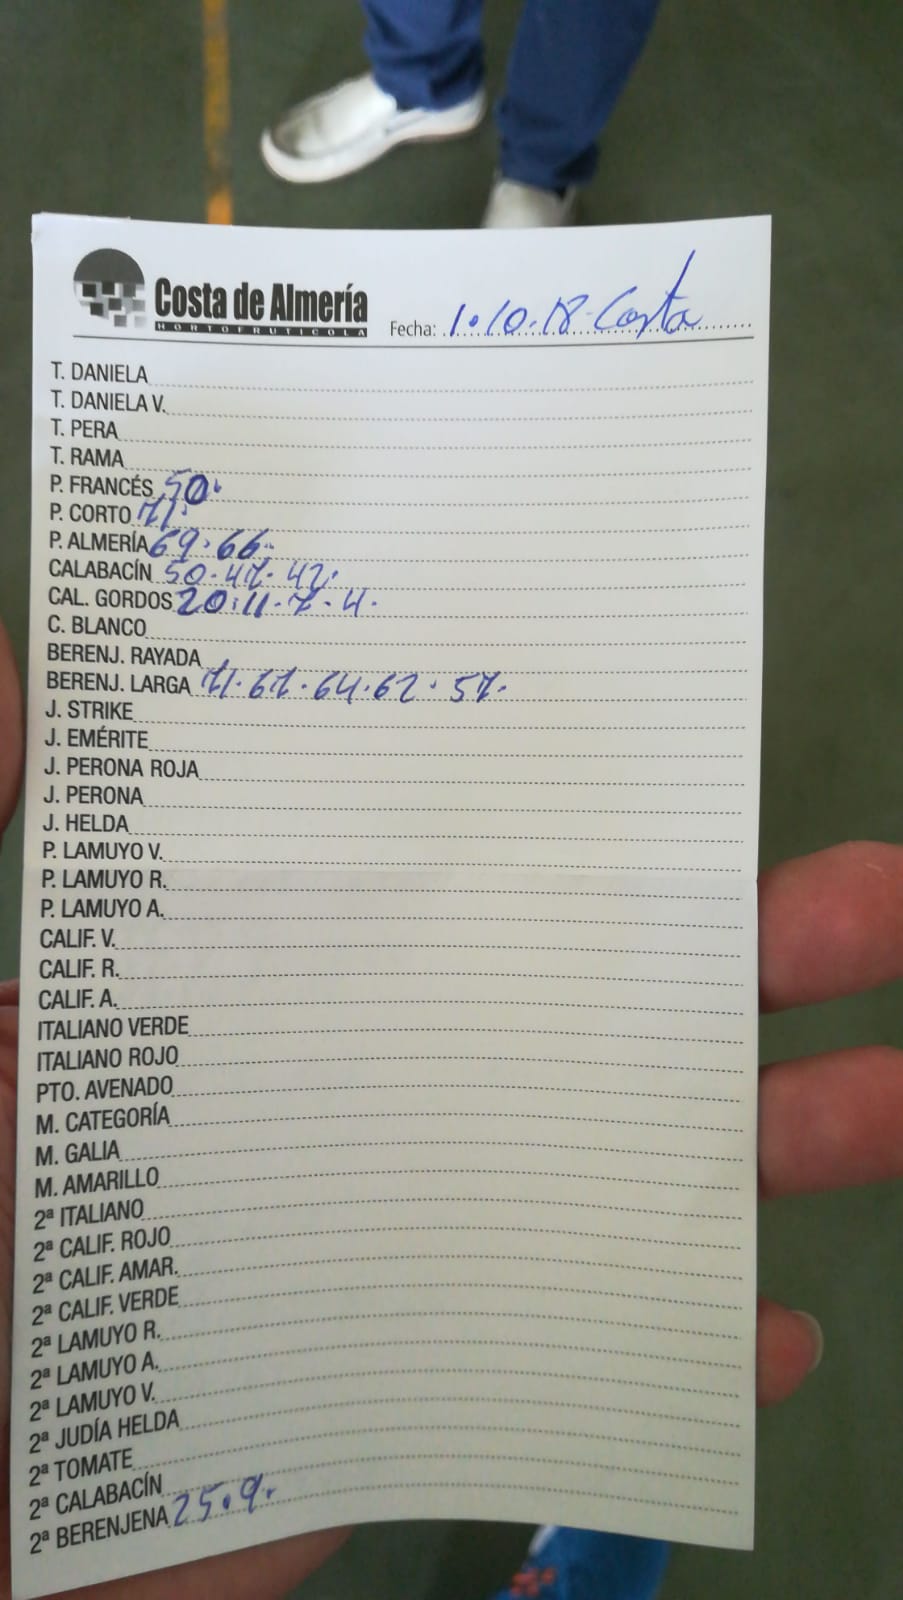 Costa de Almería
HORTOFRUTICOLA
Fecha: 1.10.18 Costa
T. DANIELA
T. DANIELA V.
T. PERA
T. RAMA
P. FRANCÉS 50.
P. CORTO 71.
P. ALMERÍA 69.66.
CALABACÍN 50.47.42.
CAL. GORDOS 20.11.7.4.
C. BLANCO
BERENJ. RAYADA
BERENJ. LARGA 71.67.64.62.57.
J. STRIKE
J. EMÉRITE
J. PERONA ROJA
J. PERONA
J. HELDA
P. LAMUYO V.
P. LAMUYO R.
P. LAMUYO A.
CALIF. V.
CALIF. R.
CALIF. A.
ITALIANO VERDE
ITALIANO ROJO
PTO. AVENADO
M. CATEGORÍA
M. GALIA
M. AMARILLO
2ª ITALIANO
2ª CALIF. ROJO
2ª CALIF. AMAR.
2ª CALIF. VERDE
2ª LAMUYO R.
2ª LAMUYO A.
2ª LAMUYO V.
2ª JUDÍA HELDA
2ª TOMATE
2ª CALABACÍN
2ª BERENJENA 25.9.